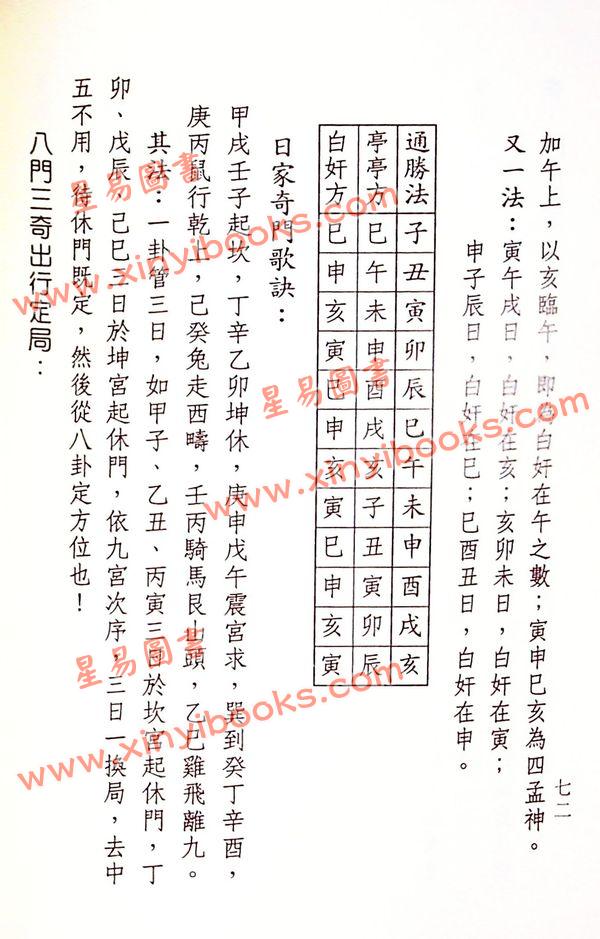 加午上，以亥臨午，即為白奸在午之數；寅申巳亥為四孟神。
又一法：寅午戌日，白奸在亥；亥卯未日，白奸在寅；
申子辰日，白奸在巳；巳酉丑日，白奸在申。
通勝法 子 丑 寅 卯 辰 巳 午 未 申 酉 戌 亥
亭亭方 巳 午 未 申 酉 戌 亥 子 丑 寅 卯 辰
白奸方 巳 申 亥 寅 巳 申 亥 寅 巳 申 亥 寅
日家奇門歌訣：
甲戌壬子起坎，丁辛乙卯坤休，庚申戊午震宮求，巽到癸丁辛酉，
庚丙鼠行乾上，己癸兔走西疇，壬丙騎馬艮山頭，乙巳雞飛離九。
其法：一卦管三日，如甲子、乙丑、丙寅三日於坎宮起休門，丁
卯、戊辰、己巳三日於坤宮起休門，依九宮次序，三日一換局，去中
五不用，待休門既定，然後從八卦定方位也！
八門三奇出行定局：
七二
星易圖書
www.xinyibooks.com
星易圖書
www.xinyibooks.com
星易圖書
www.xinyibooks.com